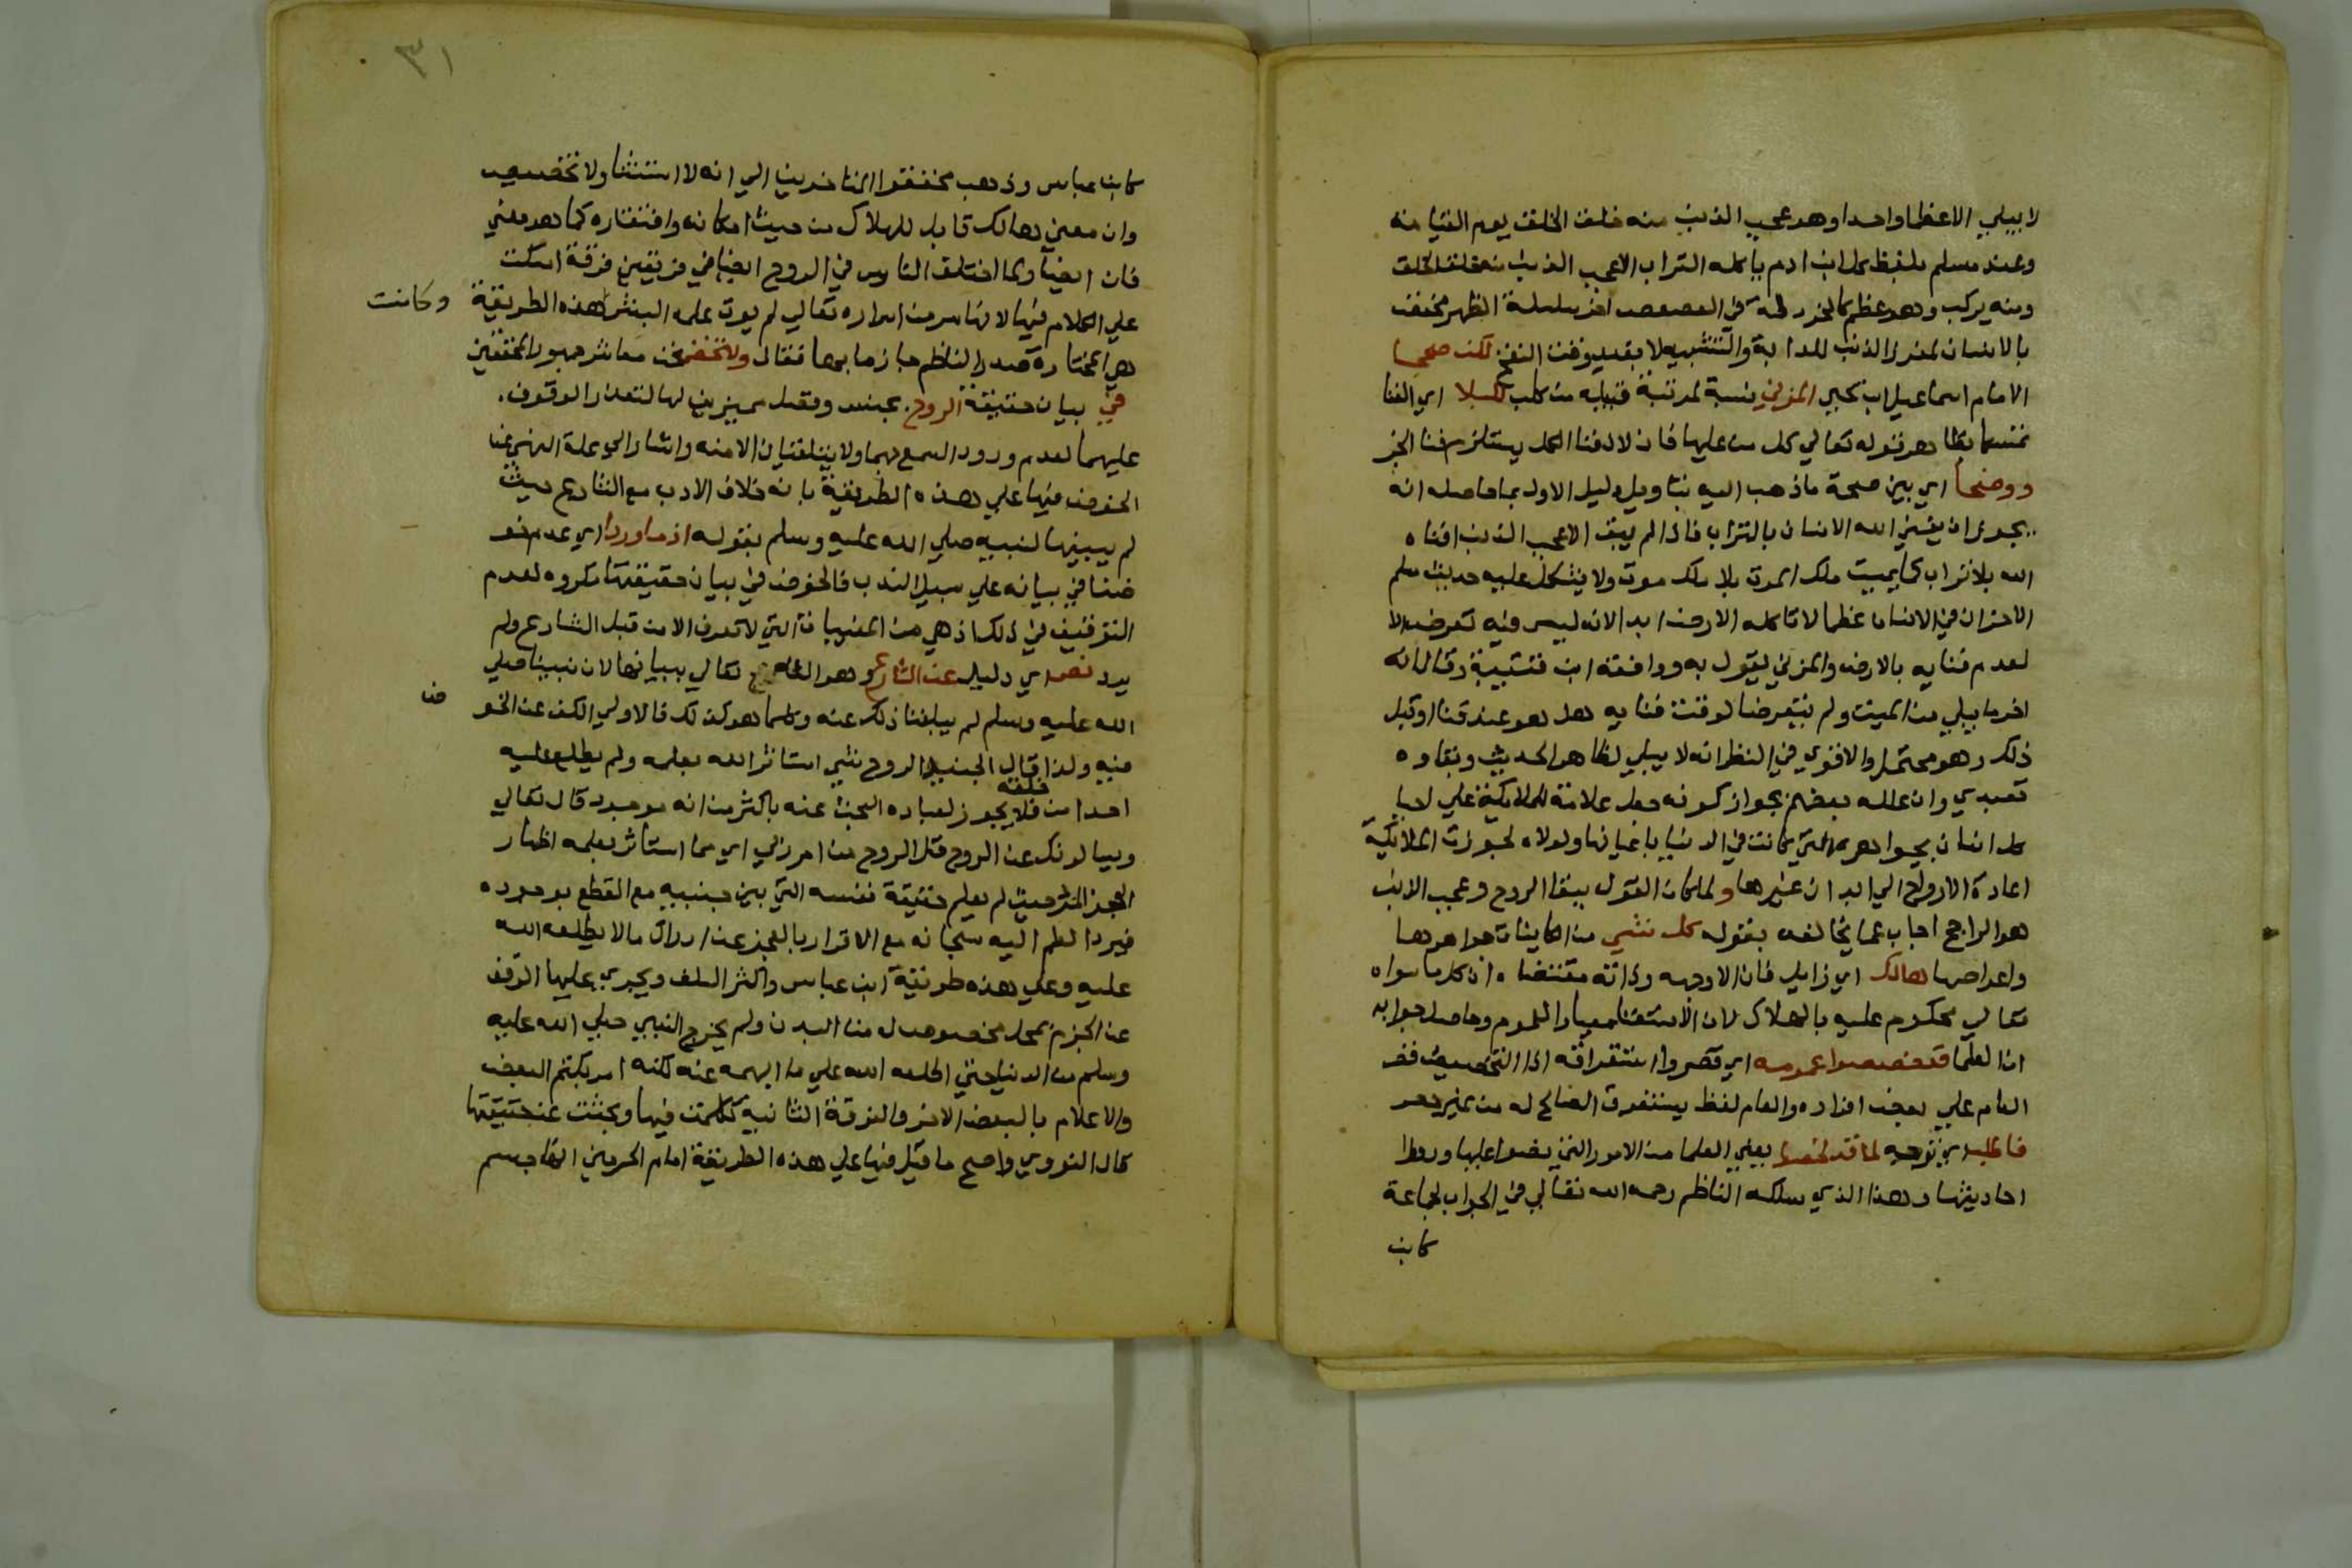 لا يبلي الا عظما واحدا وهو عجب الذنب منه خلق الخلق يوم القيامة
وعند مسلم بلفظ كل ابن ادم ياكله التراب الا عجب الذنب منه خلق الخلق
ومنه يركب وهو عظم كالخردلة في العصعص اخر سلسلة الظهر مختص
بالانسان كمغرز الذنب للدابة والتشبيه لا بقيد وقت النفخ لكن صححا
الامام اسماعيل ابن يحيي المزني نسبة لمزينة قبيلة من كلب للبلا اي الفنا
تمسكا بظاهر قوله تعالي كل من عليها فان لان فنا الكل يستلزم فنا الجز
ووضحا اي بين صحة ما ذهب اليه بتاويل دليل الاول بما حاصله انه
يجوز ان يفني الله الانسان بالتراب فاذا لم يبق الا عجب الذنب افناه
الله بلا تراب كما يميت ملك الموت بلا ملك موت ولا يشكل عليه حديث مسلم
الاخر ان في الانسان عظما لا تاكله الارض ابدا لانه ليس فيه تعرض الا
لعدم فنايه بالارض والمزني يقول به ووافقه ابن قتيبة وقال انه
اخر ما يبلي من الميت ولم يتعرضا لوقت فنايه هل هو عند فنا او قبل
ذلك وهو محتمل والاقوي في النظر انه لا يبلي لظاهر الحديث وبقاوه
تعبدي وان علله بعضهم بجواز كونه جعل علامة للملايكة علي احيا
كل انسان بجواهره التي كانت في الدنيا باعيانها ولولاه لجوزت الملائكة
اعادة الارواح الي ابدان غيرها ولما كان القول ببقا الروح وعجب الذنب
هو الراجح اجاب عما يخالفه بقوله كل شي من الكاينات جواهرها
واعراضها هالك اي زايل فان الا وجهه وذاته مقتضاه ان كل ما سواه
تعالي محكوم عليه بالهلاك لان الاستثنا معيار العموم وحاصل جوابه
ان العلما قد خصصوا عمومه اي قصروا استغراقه اذ التخصيص قصر
العام علي بعض افراده والعام لفظ يستغرق الصالح له من غير حصر
فاطلب اي توجه لما قد لخصوا يعني العلما من الامور التي نصوا عليها وردوا
احاديثها وهذا الذي سلكه الناظم رحمه الله تعالي في الجواب لجماعة
كابن
٣١
كابن عباس وذهب محققوا المتاخرين الي انه لا استثنا ولا تخصيص
وان معني هالك قابل للهلاك من حيث امكانه وافتقاره كما هو معني
فان ايضا ولما اختلف الناس في الروح ايضا في فريقين فرقة امسكت
علي الكلام فيها لانها سر من اسراره تعالي لم يوت علمه البشر وكانت هذه الطريقة
هي المختارة صدر الناظم جازما بها فقال ولا تخض نحن معاشر جمهور المحققين
في بيان حقيقة الروح بجنس وفصل مميزين لها لتعذر الوقوف
عليهما لعدم ورود السمع بهما ولا يتلقيان الا منه واشار الي علة النهي عن
الخوض فيها علي هذه الطريقة بانه خلاف الادب مع الشارع حيث
لم يبينها لنبيه صلي الله عليه وسلم بقوله اذ ما وردا اي عدم خو
ضنا في بيانه علي سبيل الندب فالخوض في بيان حقيقتها مكروه لعدم
التوقيف في ذلك اذ هي من المغيبات التي لا تعرف الا من قبل الشارع ولم
يرد نص اي دليل عن الشارع وهو الله تعالي ببيانها لان نبينا صلي
الله عليه وسلم لم يبلغنا ذلك عنه وكلما هو كذلك فالاولي الكف عن الخوض
فيه ولذا قال الجنيد الروح شي استاثر الله بعلمه ولم يطلع عليه
احدا من خلقه فلا يجوز لعباده البحث عنه باكثر من انه موجود قال تعالي
ويسالونك عن الروح قل الروح من امر ربي اي مما استاثر بعلمه اظهار
العجز المرء حيث لم يعلم حقيقة نفسه التي بين جنبيه مع القطع بوجوده
فيرد العلم اليه سبحانه مع الاقرار بالعجز عن ادراك ما لا يطلعه الله
عليه وعلي هذه طريقة ابن عباس واكثر السلف ويجري عليها الوقف
عن الجزم بمحل مخصوص له من البدن ولم يخرج النبي صلي الله عليه
وسلم من الدنيا حتي اطلعه الله علي ما ابهمه عنه لكنه امر بكتم البعض
والاعلام بالبعض الاخر والفرقة الثانية تكلمت فيها وبحثت عن حقيقتها
قال النووي واصح ما قيل فيها علي هذه الطريقة امام الحرمين انها جسم